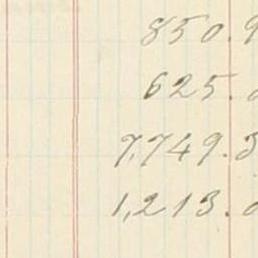 850.9
625.
7,749.3
1,213.